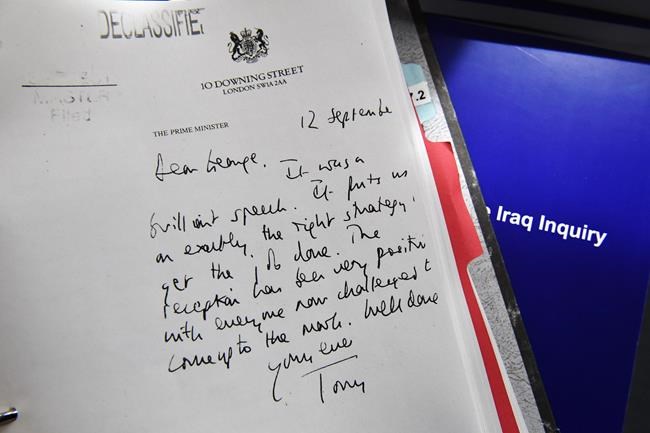 DECLASSIFIED
MINISTER
Filed
10 DOWNING STREET
LONDON SW1A 2AA
THE PRIME MINISTER
12 September
Dear George. It was a
brilliant speech. It puts us
on exactly the right strategy to
get the job done. The
reception has been very positive
with everyone now challenged to
come up to the mark. Well done
Yours ever
Tony
7.2
Iraq Inquiry